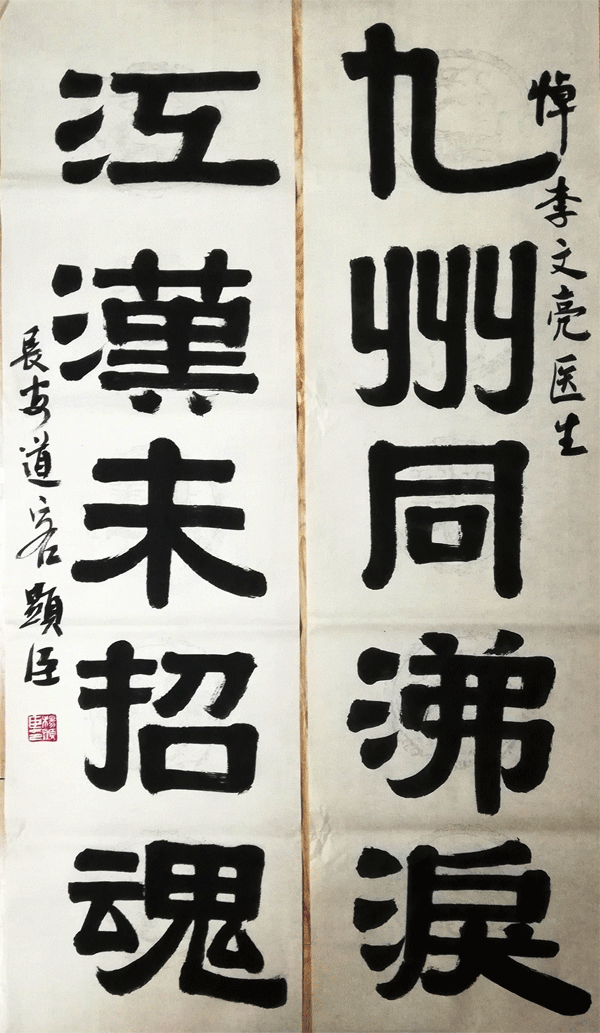 悼李文亮医生
九州同沸淚
江漢未招魂
長安道客顯臣